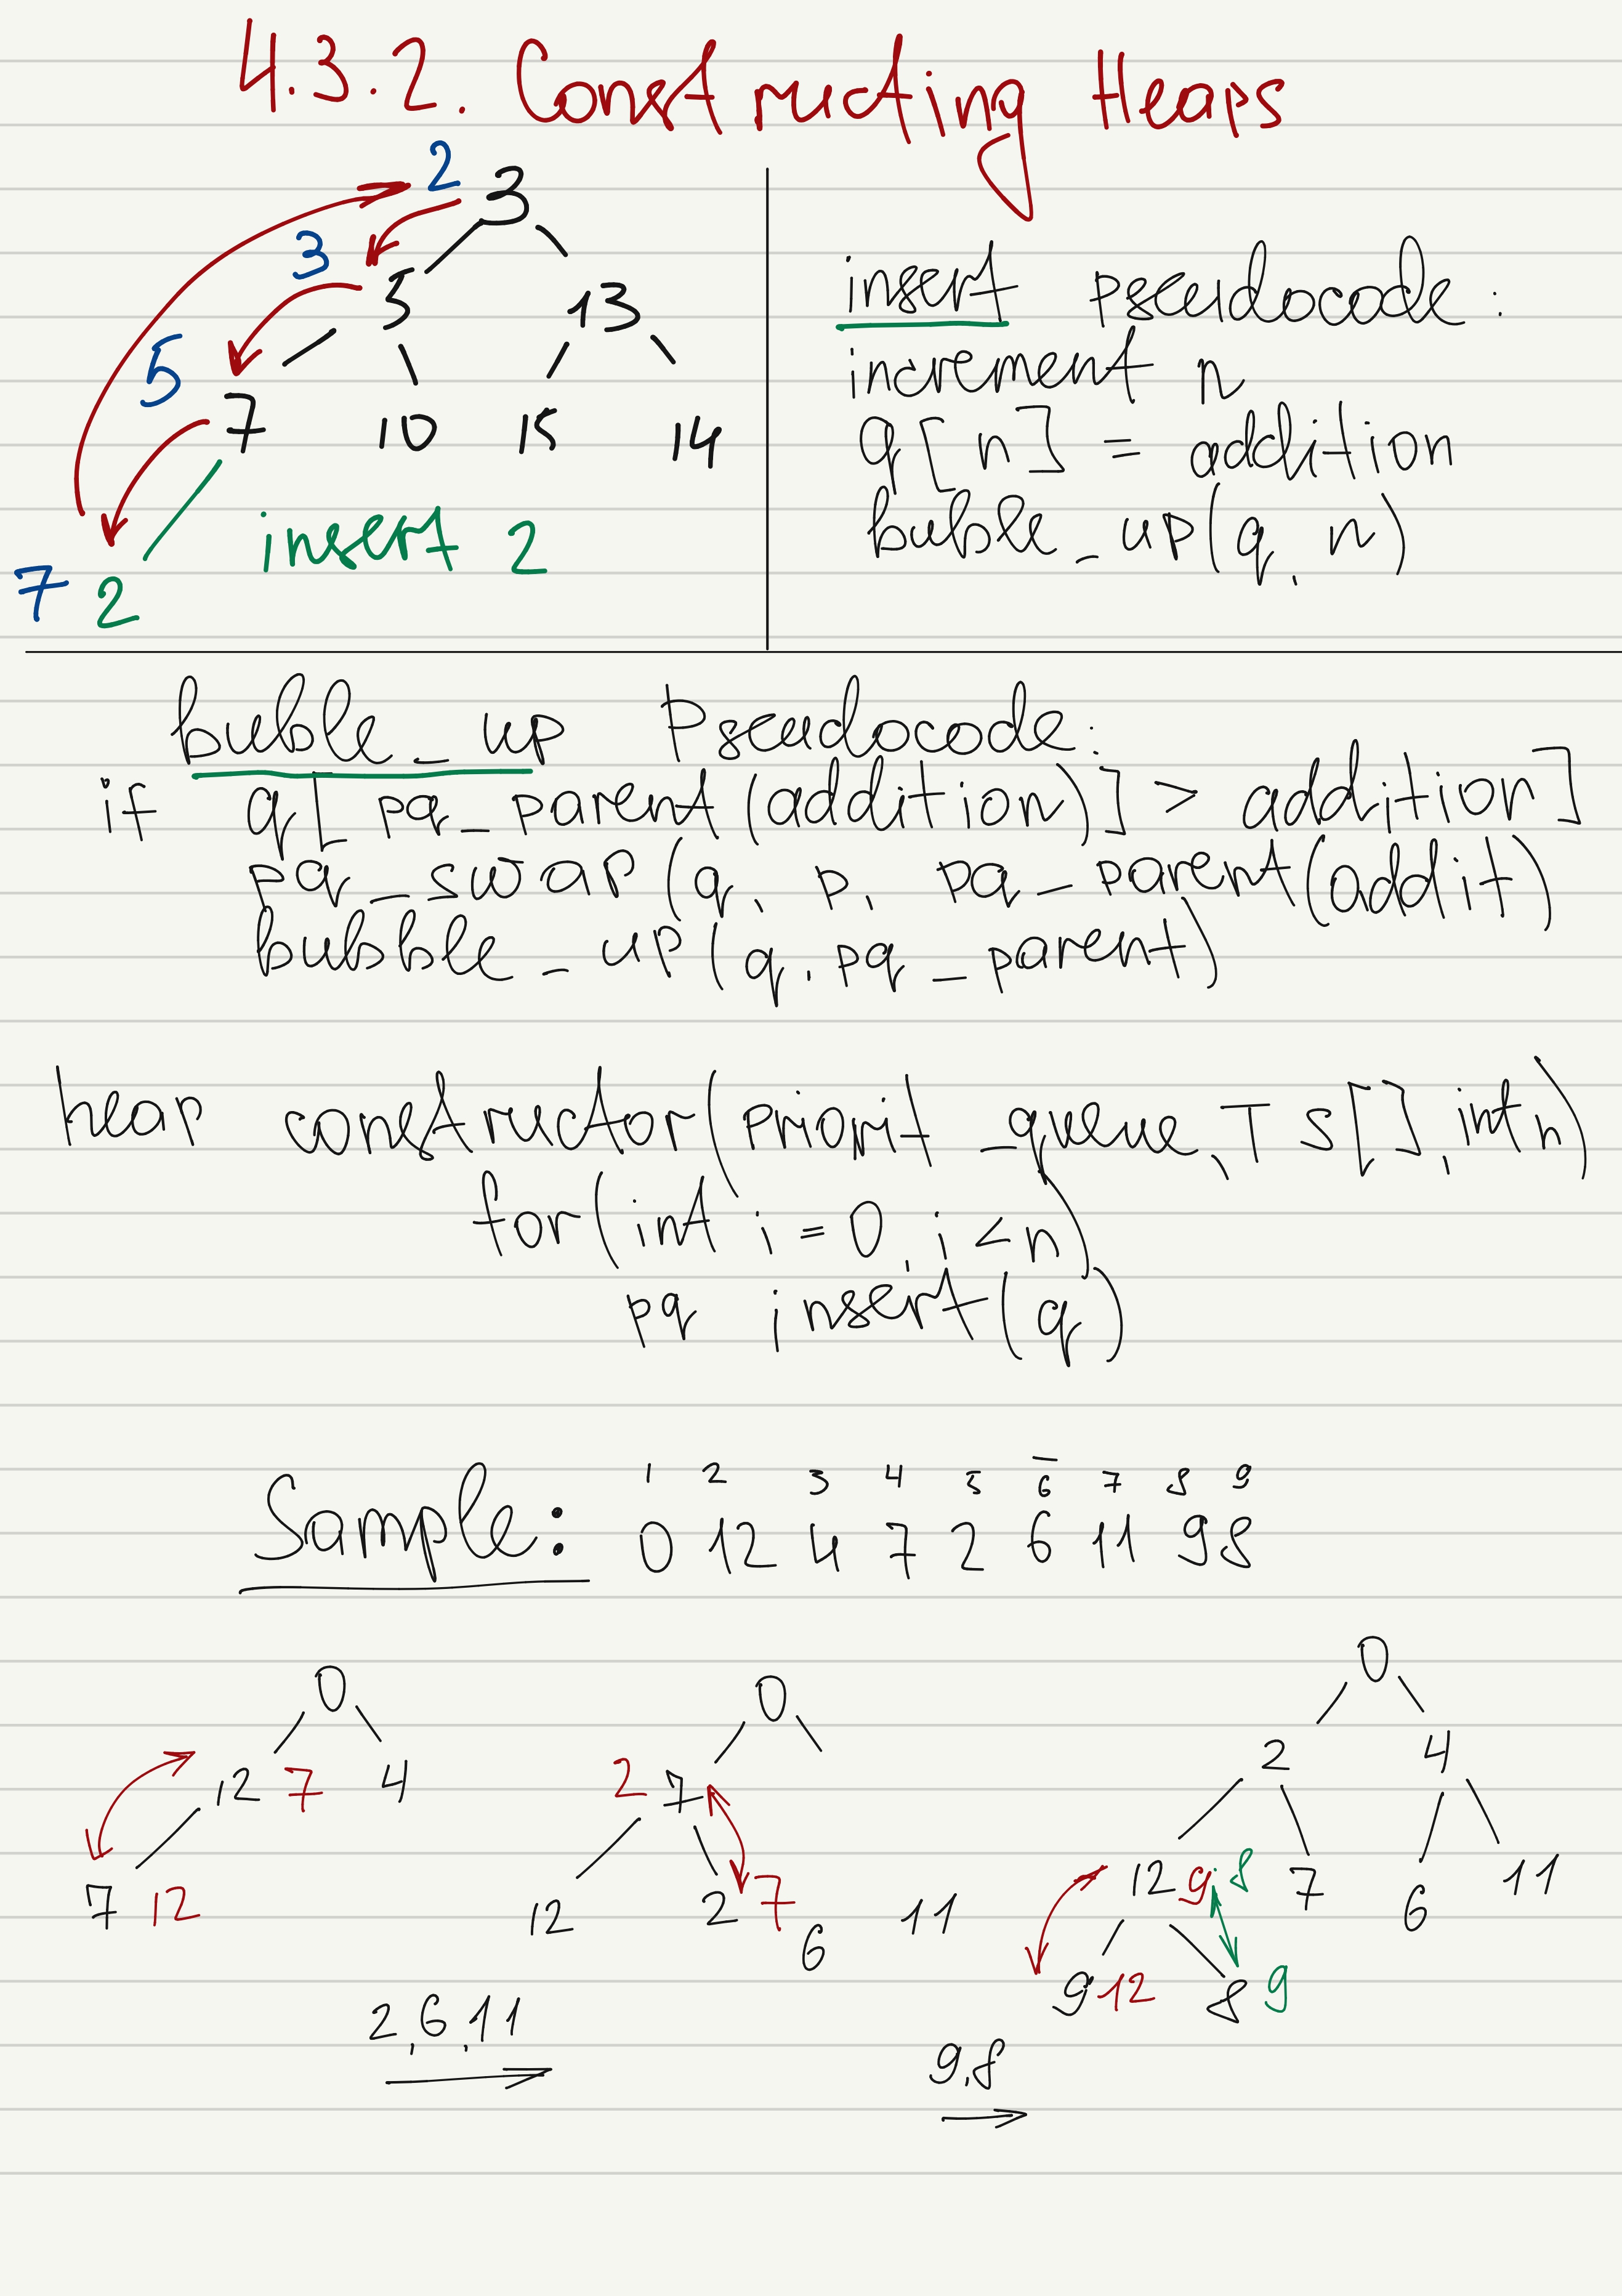 4.3.2. Constructing Heaps
2 3
3 5 13
5 7 10 15 14
insert 2
7 2
insert pseudocode:
increment n
q[n] = addition
buble_up(q, n)
buble_up Pseudocode:
if q[pq_parent(addition)] > addition]
pq_swap(q, p, pq_parent(addit)
bubble_up(q, pq_parent)
heap constructor(priorit_queue, T s[], int n)
for(int i = 0, i < n)
pq insert(q)
1 2 3 4 5 6 7 8 9
Sample: 0 12 4 7 2 6 11 9 8
0
12 7 4
7 12
2, 6, 11
0
2 7
12 2 7 6 11
9, 8
0
2 4
12 9 8 7 6 11
9 12 8 9